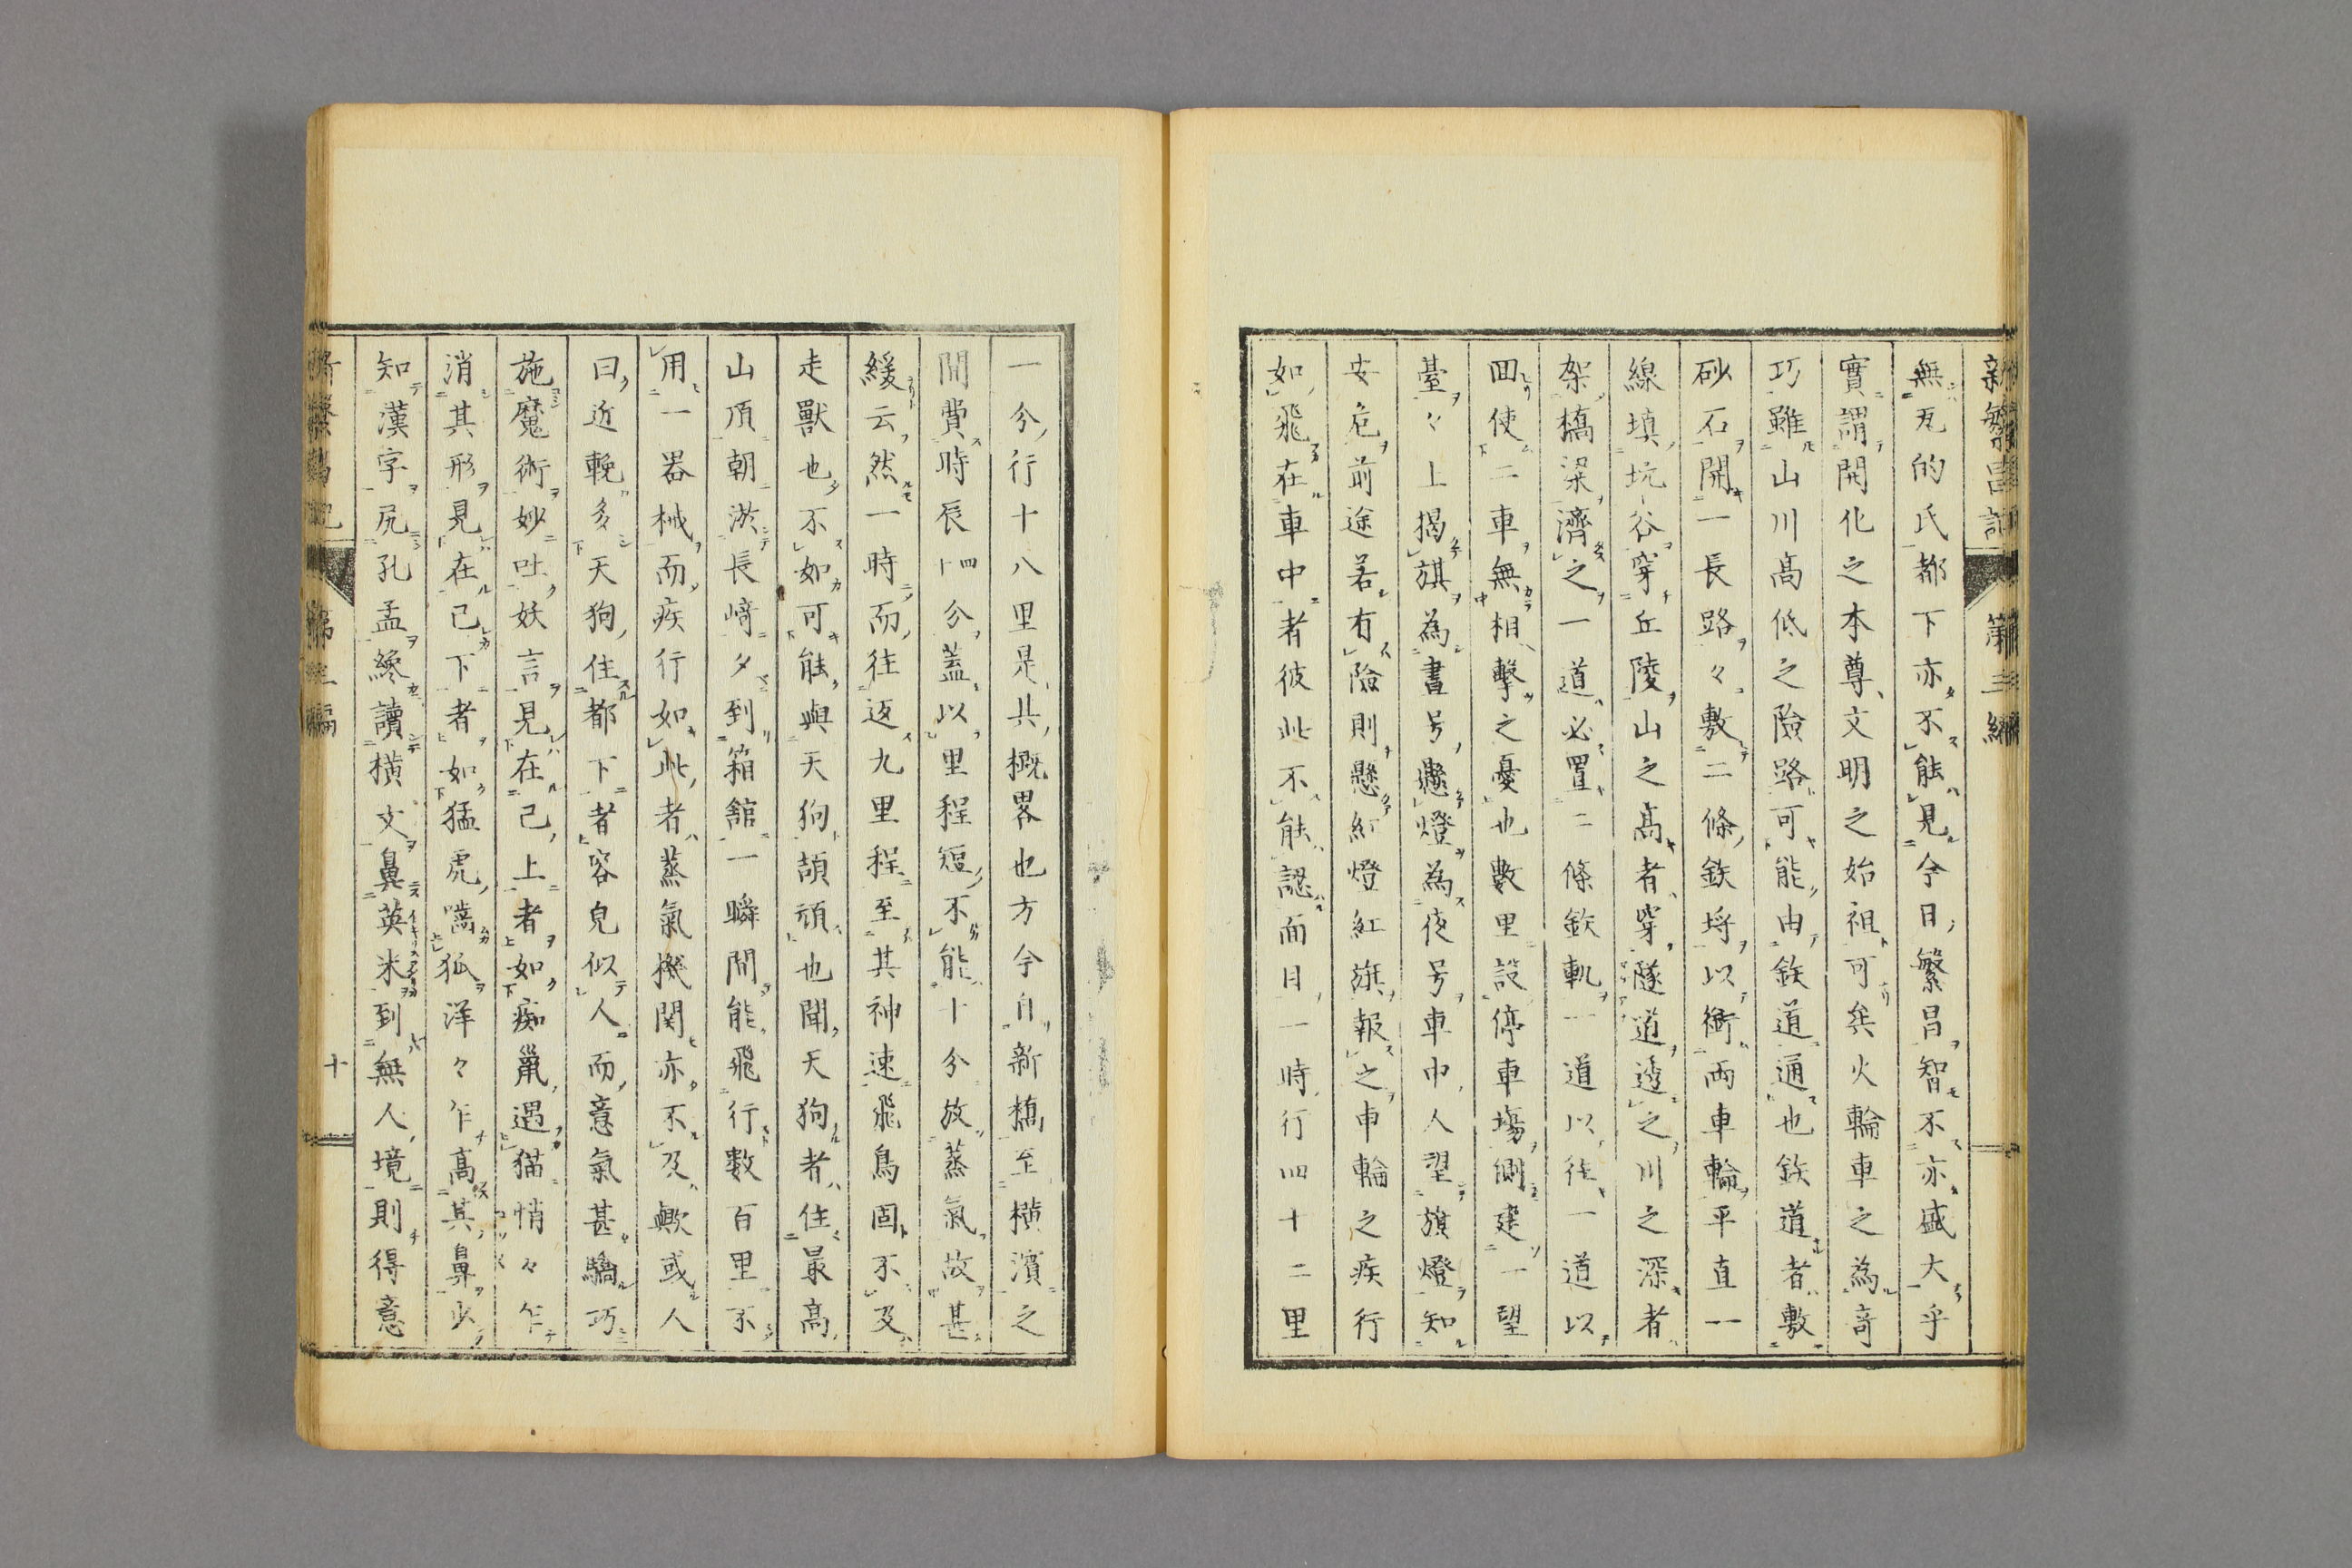 新繁昌記 第三編
無瓦的氏都下亦不能見今日繁昌智不亦盛大乎
實謂開化之本尊文明之始祖可矣火輪車之為竒
巧雖山川高低之險路可能由鉄道通也鉄道者敷
砂石開一長路々敷二條鉄埒以衝両車輪平直一
線填坑谷穿丘陵山之高者穿隧道透之川之深者
架橋梁濟之一道必置二條鉄軌一道以往一道以
回使二車無相撃之憂也數里設停車塲側建一望
臺々上揭旗為晝号懸燈為夜号車中人望旗燈知
安危前途若有險則懸紅燈紅旗報之車輪之疾行
如飛在車中者彼此不能認面目一時行四十二里
一分行十八里是其概畧也方今自新橋至横濱之
間費時辰四十分蓋以里程短不能十分放蒸氣故甚
緩云然一時而往返九里程至其神速飛鳥固不及
走獸也不如可能與天狗頡頏也聞天狗者住最高
山頂朝游長﨑夕到箱舘一瞬間能飛行數百里不
用一器械而疾行如此者蒸氣機関亦不及歟或人
曰近輓多天狗住都下者容皃似人而意氣甚驕巧
施魔術妙吐妖言見在己上者如痴鼠遇猫悄々乍
消其形見在己下者如猛虎嚙狐洋々乍高其鼻少
知漢字尻孔孟纔讀横文鼻英米到無人境則得意
新繁昌記 第三編 十